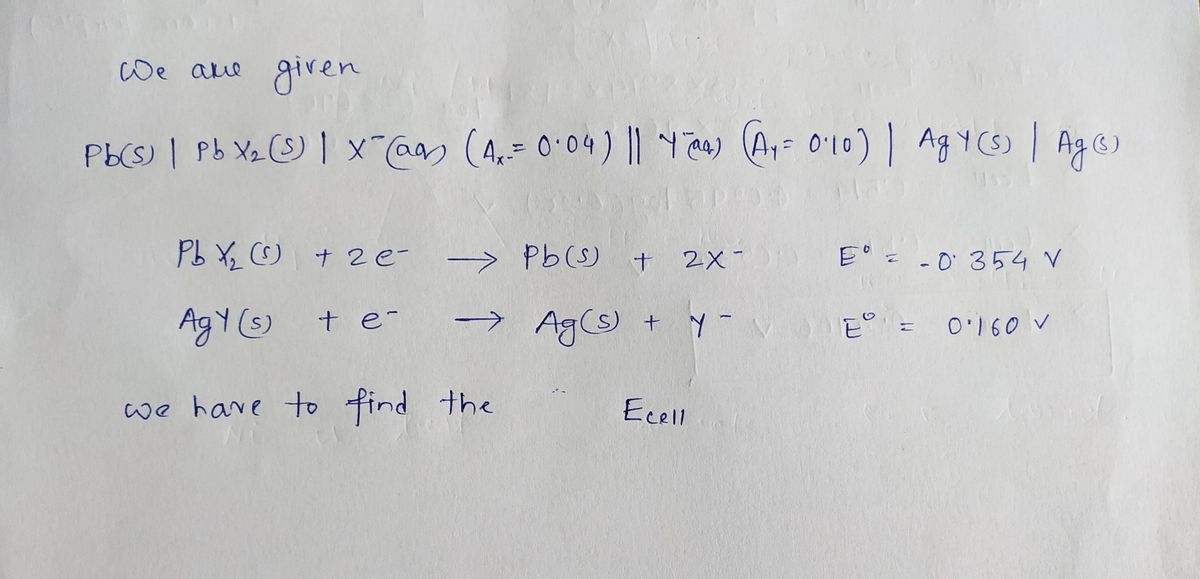 We are given
Pb(s) | Pb X₂(s) | X⁻(aq) (Aₓ₋= 0.04) || Y⁻(aq) (Aᵧ= 0.10) | Ag Y(s) | Ag(s)
Pb X₂ (s) + 2e⁻ → Pb(s) + 2X⁻ E° = -0.354 V
AgY(s) + e⁻ → Ag(s) + Y⁻ E° = 0.160 V
we have to find the Ecell